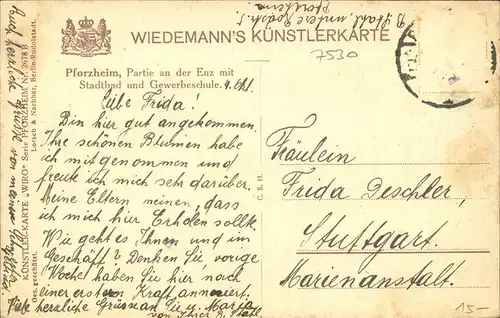 WIEDEMANN'S KÜNSTLERKARTE
7530
Pforzheim, Partie an der Enz mit
Stadtbad und Gewerbeschule.
4. Okt.
Liebe Frida!
Bin hier gut angekommen.
Ihre schönen Blumen habe
ich mitgenommen und
freute ich mich sehr darüber.
Meine Eltern meinen, dass
ich mich hier Erholen sollte.
Wie geht es Ihnen und im
Geschäft? Denken Sie vorige
Woche haben Sie hier nach
einer ersten Kraft annonciert.
herzliche Grüsse an Sie u. Maria
von Ihrer B. Stahl
Auch herzliche Grüsse von meinen
KÜNSTLERKARTE „WIRO“ Serie PFORZHEIM Nr. 2678 B
Lorsch & Nachbar, Berlin-Rudolstadt.
Ges. geschützt.
C. S. H.
B. Stahl, untere
Pforzheim
Fräulein
Frida Deschler,
Stuttgart.
Marienanstalt.
15-